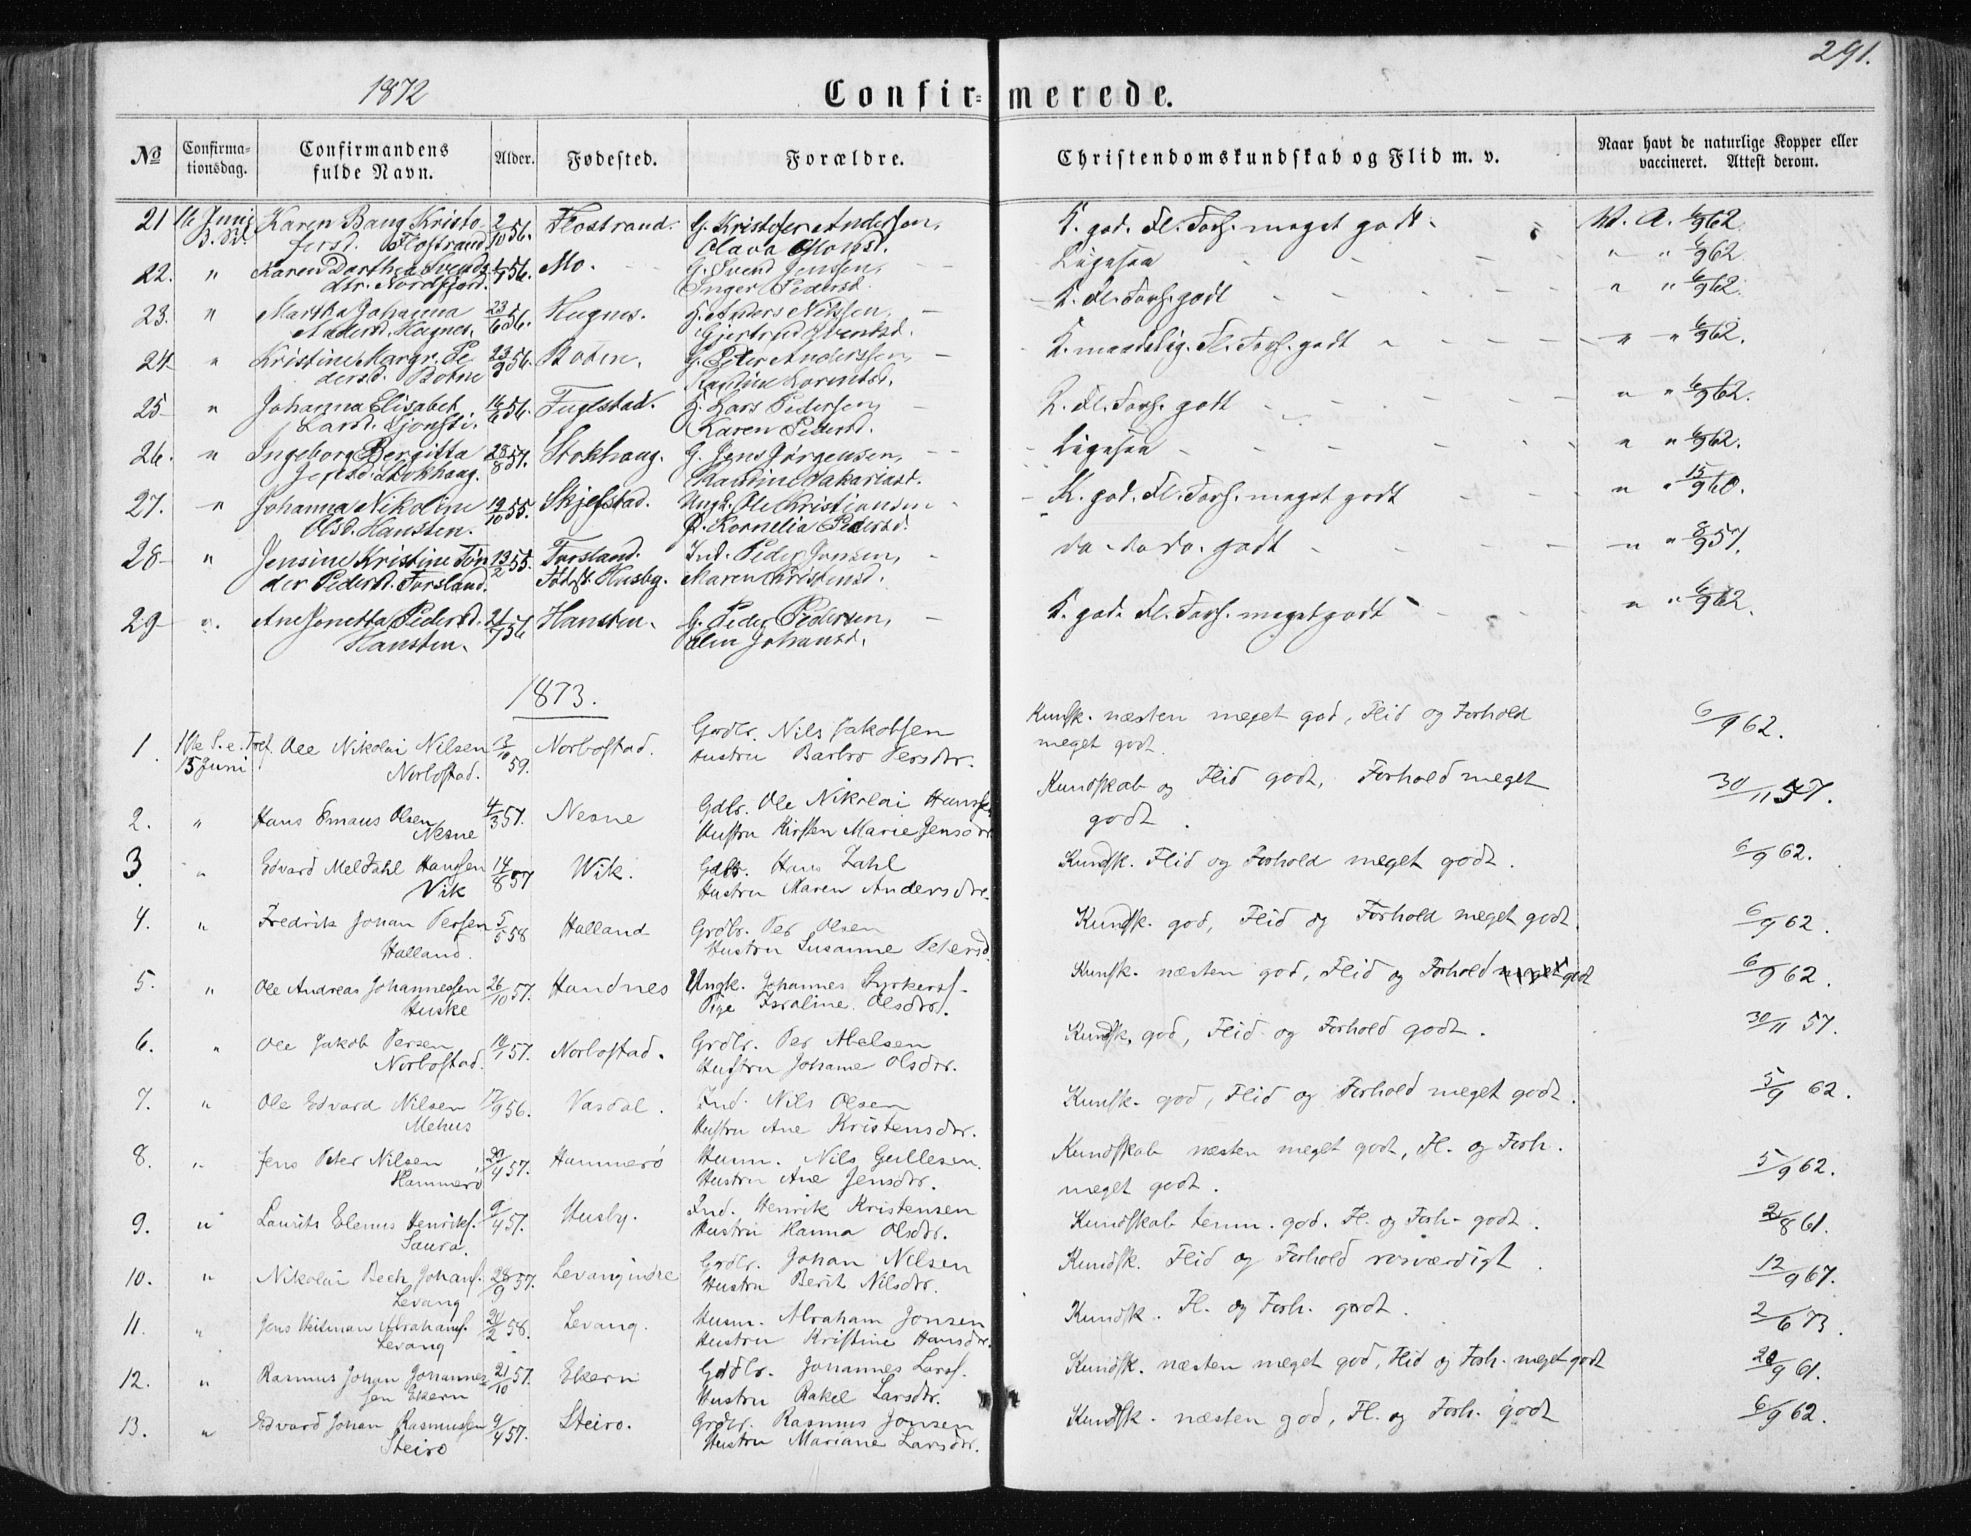 291.
1872
Confirmerede.
No
Confirmationsdag.
Confirmandens fulde Navn.
Alder.
Fødested.
Forældre.
Christendomskundskab og Flid m. v.
Naar havt de naturlige Kopper eller vaccineret. Attest derom.
21 16 Juni Karen Bang Kristo 2/10 56. Flostrand. G. Kristofer Andersen, K. god. Fl. Forh. meget godt. V. A. 6/9 62.
fersd. Flostrand
22. " Karen Dorthea Svends 56. Mo. G. Svend Jensen, Ligesaa " " 6/9 62.
dtr. Nordfjord. Inger Pedersd.
23. " Martha Johanna 23/6 56. Hugnes. G. Anders Nilssen, K. Fl. Forh. godt " " 6/9 62.
Andersd. Hugnes.
24 " Kristine Margr. Pe 23/9 56. Botn. G. Peter Anderssen, K. maadelig. Fl. Forh. godt " " 6/9 62.
dersd. Botne
25 " Johanna Elisabet 16/6 56. Fuglstad. G. Lars Pedersen K. Fl. Forh. godt " " 6/9 62.
Larsd. Karen Pedersd.
26. " Ingeborg Bergitta 28/8 57. Stokhaug. G. Jens Jørgensen, Ligesaa " " 6/9 62.
Jensd. Stokhaug. Zakariasd.
27. " Johanna Nikoline 19/10 55. Skjelstad. Ungk. Ole Kristiansen K. god. Fl. Forh. meget godt " " 15/9 60.
Olsd. Hansten. P. Kornelia Pedersd.
28 " Jensine Kristine Tøn 13/2 55. Forsland. Ind. Peder Jensen, do do do. godt " " 8/9 57.
der Pedersd. Forsland. Fødest. Husby. Maren Kristensd.
29 " Ane Jonetta Pedersd. 21/7 56 Hansten. G. Peder Pedersen, K. god. Fl. Forh. meget godt " " 6/9 62.
Hansten. Elen Johansd.
1873.
1. 1ste S. e. Tref. Ole Nikolai Nilsen 13/10 59. Norbostad. Grdbr. Nils Jakobsen Kundsk. næsten meget god, Flid og Forhold 6/9 62.
15 Juni Norbostad. Hustru Barbro Persdtr. meget godt.
2. " Hans Emaus Olsen 4/3 57. Nesne Gdbr. Ole Nikolai Hansen Kundskab og Flid godt, Forhold meget 30/11 57.
Nesne Hustru Kirsten Marie Jensdtr godt.
3. " Edvard Meldahl Hanssen 14/8 57 Wik. Gdbr. Hans Zahl Kundsk. Flid og Forhold meget godt. 6/9 62.
Vik Hustru Maren Andersdtr.
4. " Fredrik Johan Persen 5/5 58 Halland Grdbr. Per Olsen Kundsk. god, Flid og Forhold meget godt. 6/9 62.
Halland. Hustru Susanne Petersd.
5. " Ole Andreas Johannessen 26/10 57. Handnes Ungk. Johannes Kunsk. næsten god, Flid og Forhold meget godt 6/9 62.
Huske Pige Israline Olsdtr.
6. " Ole Jakob Persen 57. Norbostad. Grdbr. Per Abelsen Kundsk. god, Flid og Forhold godt. 30/11 57.
Norbostad. Hustru Johanne Olsdtr.
7. " Ole Edvard Nilsen 17/9 56. Vasdal. Ind. Nils Olsen Kunsk. god, Flid og Forhold meget godt. 5/9 62.
Mehus Hustru Ane Kristensdtr.
8. " Jens Peter Nilsen 20/4 57. Hammerø Husm. Nils Gullesen. Kundskab næsten meget godt, Fl. og Forh. 5/9 62.
Hammerø Hustru Ane Jensdtr. meget godt.
9. " Laurits Elenus Henriks. 9/4 57. Husby. Ind. Henrik Kristensen Kundskab temm. god. Fl. og Forh. godt. 2/8 61.
Saura. Hustru Hanna Olsdtr.
10. " Nikolai Bech Johans. 28/9 57. Levang indre Grdbr. Johan Nilsen Kundsk. Flid og Forhold rosværdigt. 12/9 67.
Levang Hustru Berit Nilsdtr.
11. " Jens Heitman Abrahams. 20/2 58. Levang. Husm. Abraham Jonsen Kundsk. Fl. og Forh. godt. 2/6 73.
Levang Hustru Kristine Hansdtr.
12. " Rasmus Johan Johannes 21/10 57. Ekern Grdbr. Johannes Lars. Kundsk. næsten meget god, Flid og Forh. meget godt 20/9 61.
sen Ekern Hustru Rakel Larsdtr.
13. " Edvard Johan Rasmussen 9/4 57. Steiro. Grdbr. Rasmus Jonsen Kundsk. næsten god, Fl. og Forh. godt 6/9 62.
Steiro Hustru Mariane Larsdtr.